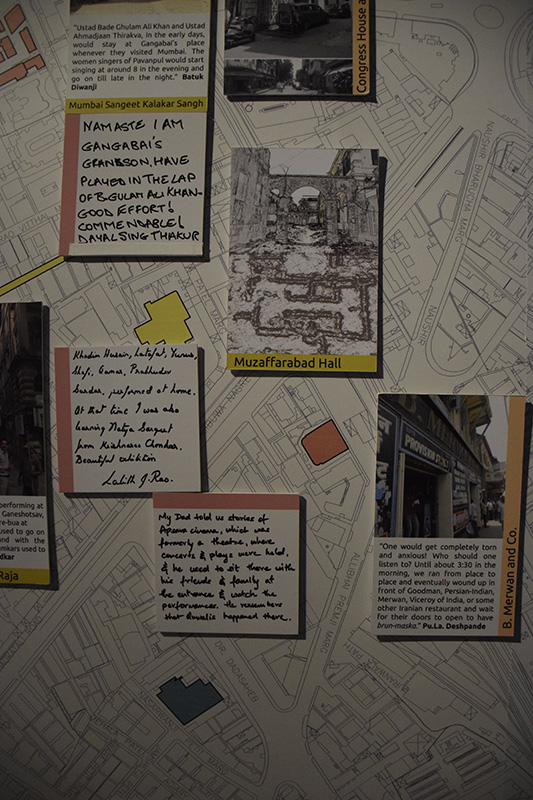 "Ustad Bade Ghulam Ali Khan and Ustad
Ahmadjaan Thirakva, in the early days,
would stay at Gangabai's place
whenever they visited Mumbai. The
women singers of Pavanpul would start
singing at around 8 in the evening and
go on till late in the night." Batuk
Diwanji
Mumbai Sangeet Kalakar Sangh
NAMASTE I AM
GANGABAI'S
GRANDSON, HAVE
PLAYED IN THE LAP
OF B.GULAM ALI KHAN-
GOOD EFFORT!
COMMENDABLE!
DAYALSING THAKUR
Congress House a
Muzaffarabad Hall
NAUSHIR BHARUCHA MARG
NAUSHIR
PATEL MARG
Khadim Husain, Latafat, Yunus,
Shafi, Gamas, Prabhudev
Sardar, performed at home.
At that time I was also
learning Natya Sangeet
from Krishnarao Chonkar.
Beautiful exhibition
Lalith J. Rao.
performing at
Ganeshotsav,
re-bua at
used to go on
and with the
amkars used to
dkar
Raja
My Dad told us stories of
Apsara cinema, which was
formerly a theatre, where
concerts & plays were held,
& he used to sit there with
his friends & family at
the entrance & watch the
performances. He remembers
that Qawalis happened there.
PROVISION STORES
"One would get completely torn
and anxious! Who should one
listen to? Until about 3:30 in the
morning, we ran from place to
place and eventually wound up in
front of Goodman, Persian-Indian,
Merwan, Viceroy of India, or some
other Iranian restaurant and wait
for their doors to open to have
brun-maska." Pu.La. Deshpande
B. Merwan and Co.
ALLIBHAI PREMJI MARG
DR DADASAHEB
PATH